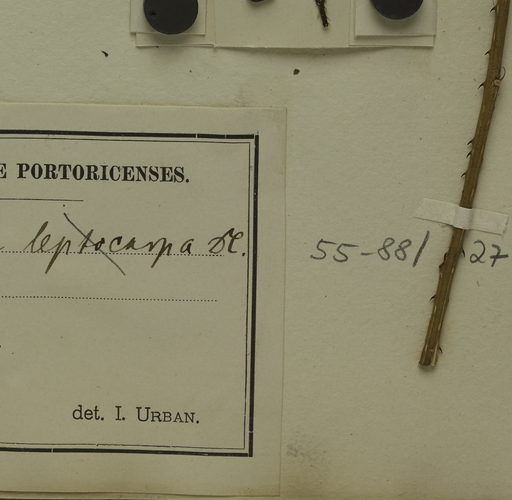 E PORTORICENSES.
leptocarpa DC.
55-88/ 27
det. I. URBAN.